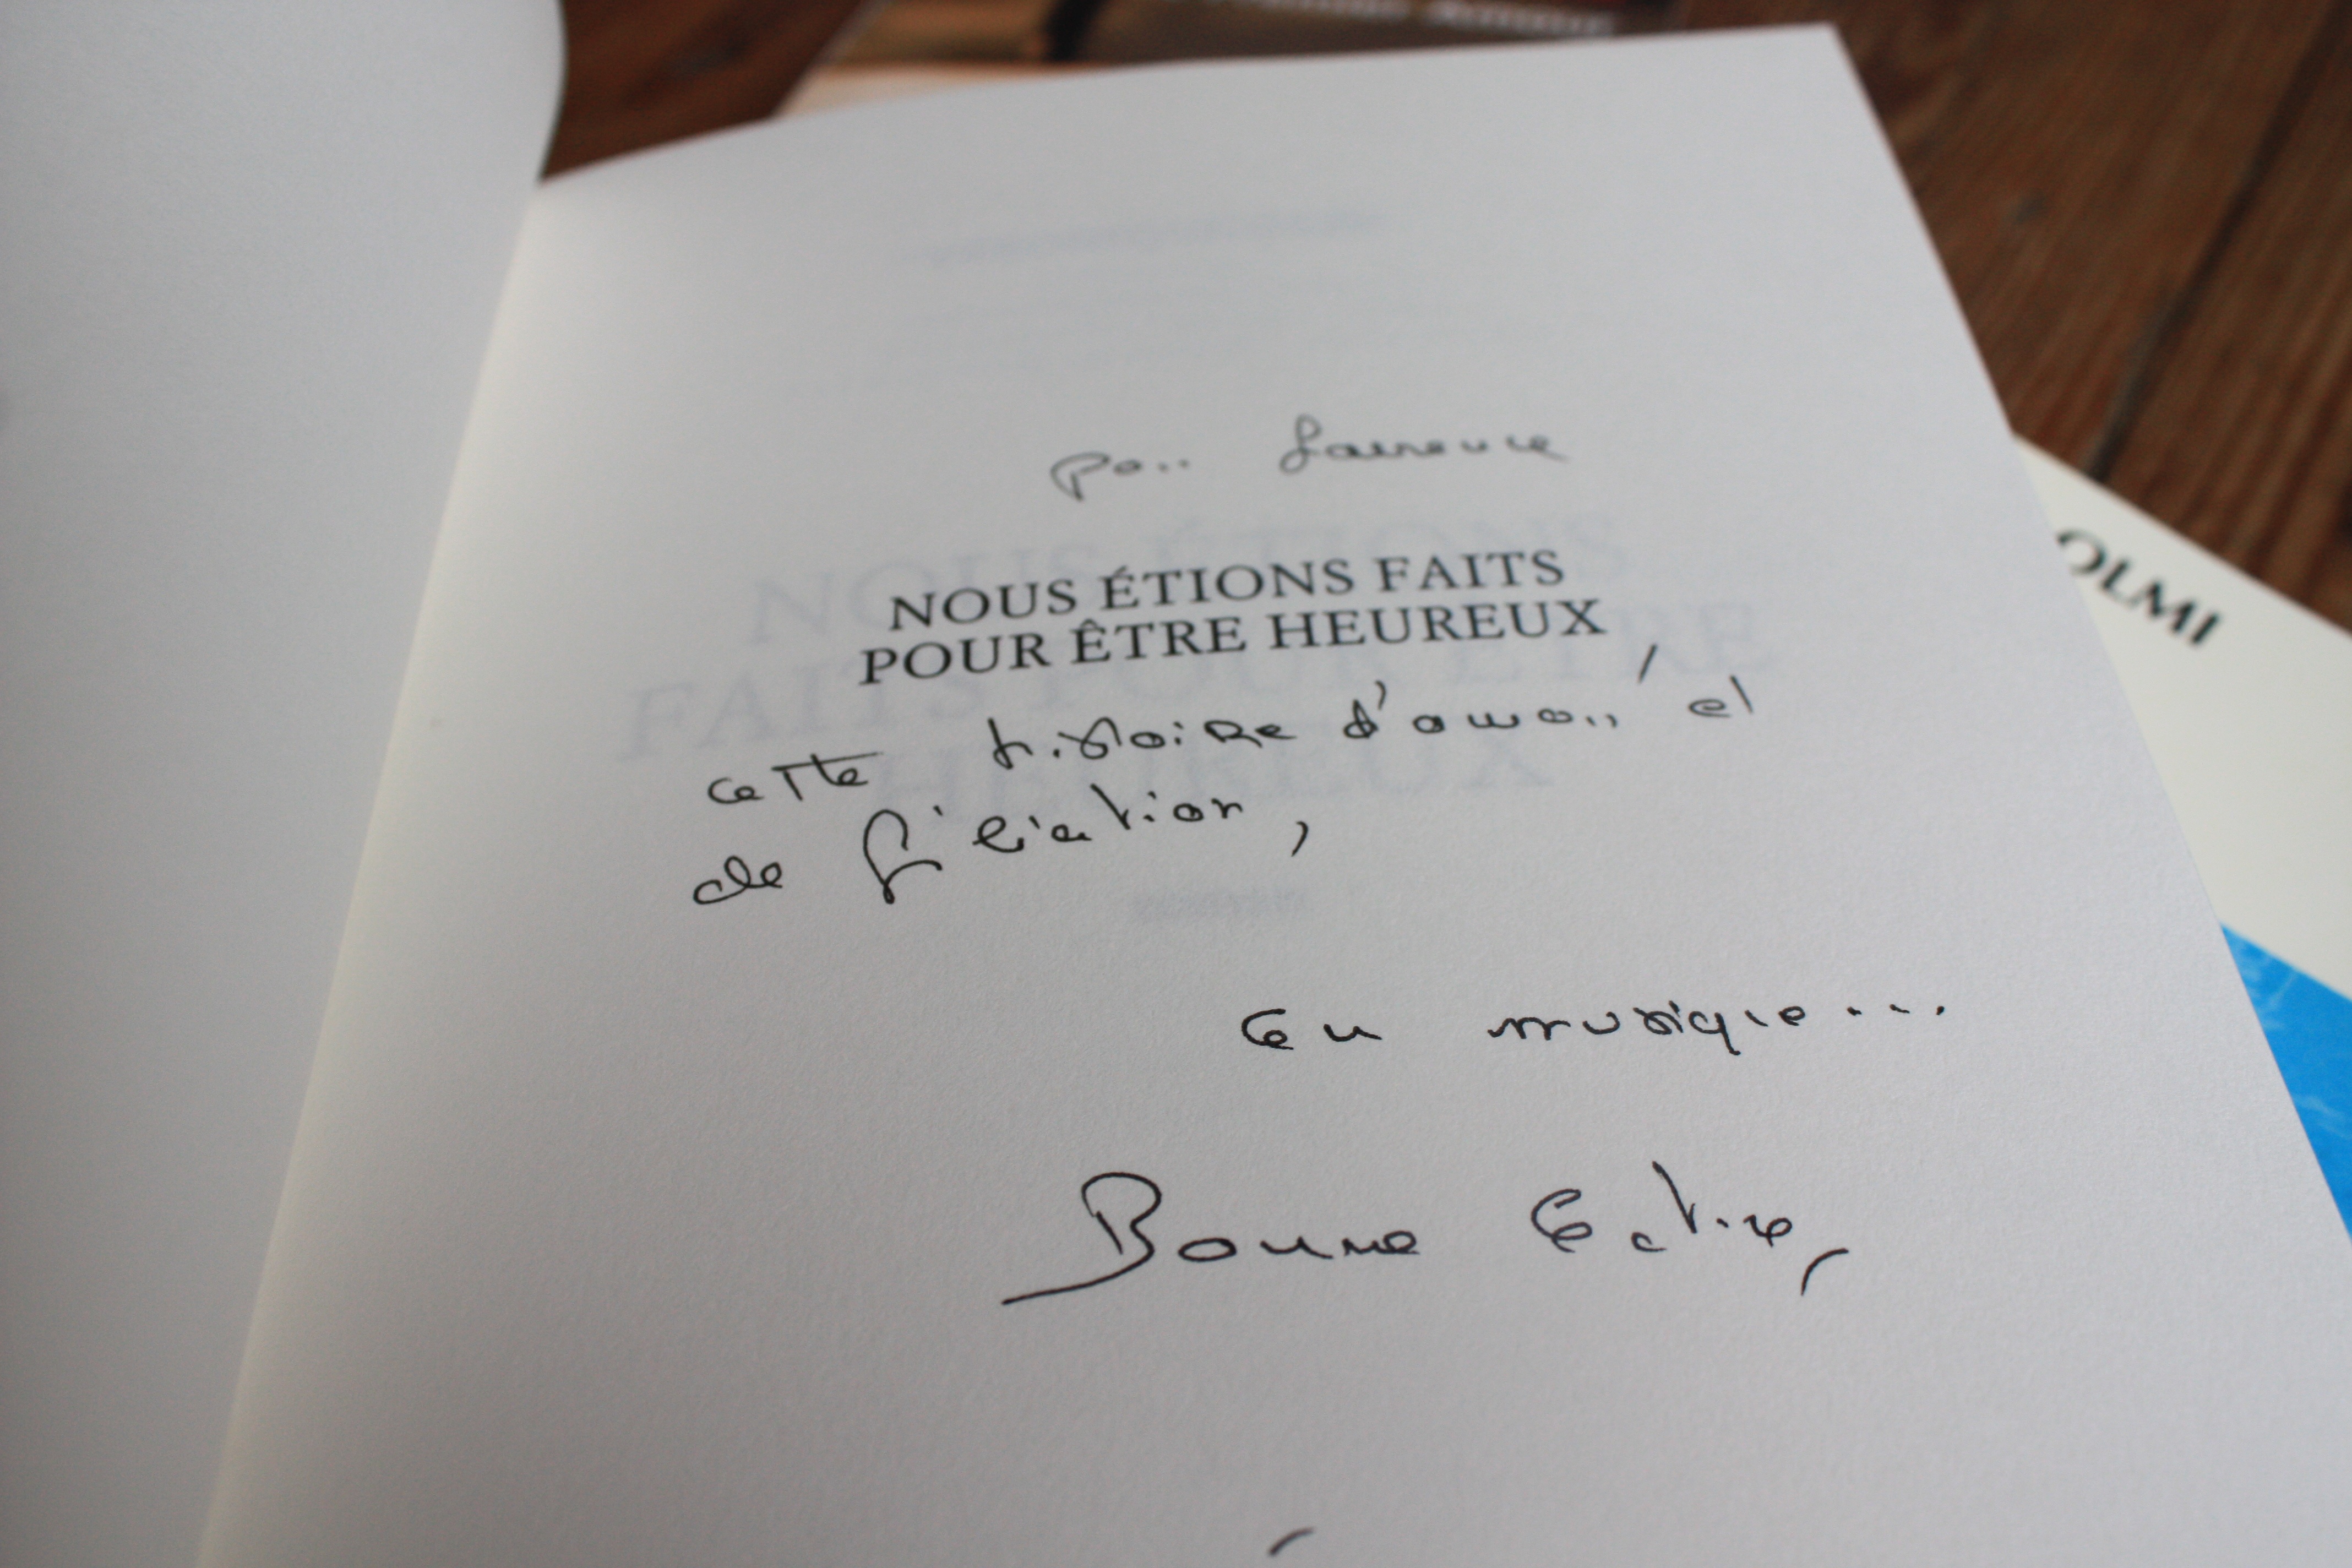 Pour Laurence
NOUS ÉTIONS FAITS
POUR ÊTRE HEUREUX
cette histoire d'amour et
de filiation,
en musique...
Bonne lecture,
OLMI